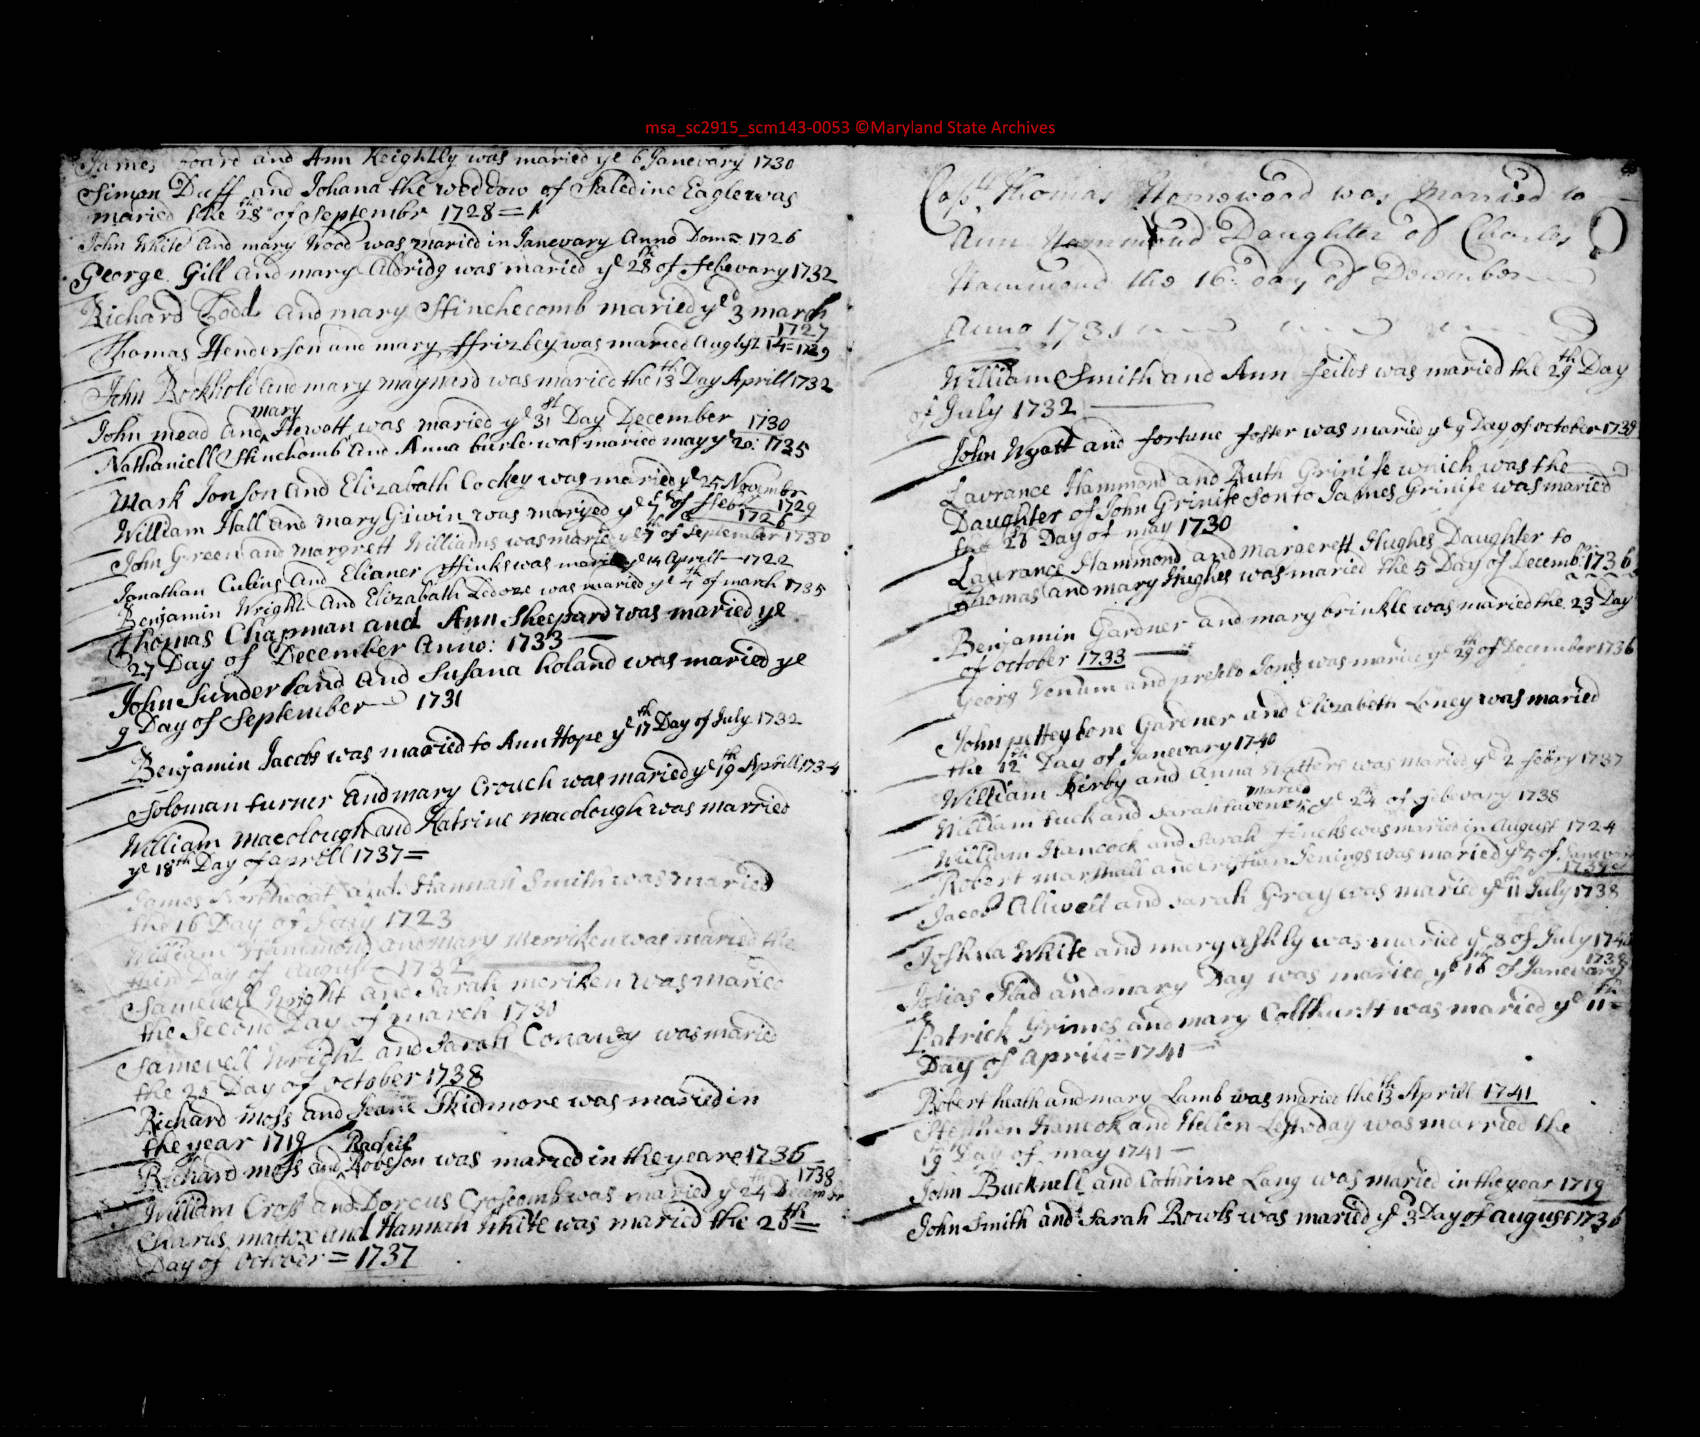 msa_sc2915_scm143-0053 ©Maryland State Archives
James foard and Ann Keightly was maried ye 6 Janevary 1730
Simon Duff and Johana the weddow of Faledine Eagle was
maried the 28th of Septembr 1728 =
John White and mary Wood was maried in Janevary Anno Dom 1726
George Gill and mary Aldridg was maried ye 28th of febevary 1732
Richard Todd and mary Stinchecomb maried ye 3d march
1727
Thomas Henderson and mary ffrizley was maried Augst 14 = 1729
John Rockhold and mary maynard was maried the 13th Day Aprill 1732
mary
John mead and Hewott was maried ye 31st Day December 1730
Nathaniell Stinchomb and Anna burle was maried may ye 20: 1735
Mark Jonson and Elizabath Cockey was maried ye 25 Novembr
1729
William Hall and mary Giwin was maryed ye 7th of ffebr
1726
John Green and margrett Williams was marid ye 7th of September 1730
Jonathan Cubing and Elianer Hinks was marid ye 14 Aprill 1722
Benjamin Wright and Elizabath Ledoze was maried ye 4th of march 1735
Thomas Chapman and Ann Sheppard was maried ye
27 Day of December Anno: 1733
John Sunderland and Susana holand was maried ye
9 Day of September 1731
Benjamin Jacobs was maried to Ann Hope ye 17th Day of July 1732
Soloman turner and mary Crouch was maried ye 19th Aprill 1734
William macolough and Katrine macolough was married
ye 18th Day of aprill 1737 =
James and Hannah Smith was maried
the 16 Day of 1723
William Hammond and mary merriken was maried the
third Day of August 1732
Samewell Wright and Sarah meriken was maried
the Second Day of march 1730
Samewell Wright and Sarah Conaway was maried
the 25 Day of october 1738
Richard moss and Jeane Skidmore was maried in
the year 1719
Rachel
Richard moss and Robeson was maried in the yeare 1736
1738
William Cross and Dorcus Croscomb was maried ye 24th Decembr
Charles mattox and Hannah White was maried the 26th =
Day of October = 1737
Capt. Thomas Homewood was Married to
Ann Hammond Daughter of Charles
Hammond the 16: day of December
Anno 1731
William Smith and Ann feilds was maried the 29th Day
of July 1732
John Wyatt and fortune foster was maried ye 9 Day of october 1739
Lavrance Hammond and Ruth Grinife which was the
Daughter of John Grinife Son to James Grinife was maried
the 26 Day of may 1730
Laurance Hammond and margerett Hughes Daughter to
Thomas and mary Hughes was maried the 5 Day of Decembr 1736
Benjamin Gardner and mary brinkle was maried the 23 Day
of october 1733
Georg Venum and Jones was maried ye 29th of December 1736
John pettey bone Gardner and Elizabeth Loney was maried
the 12th Day of Janevary 1740
William Kirby and Anna Watters was maried ye 2 febry 1737
maried
William tuck and Sarah ye 24th of febevary 1738
William Hancock and Sarah fincks was maried in August 1724
Robert marshall and Cristian Jenings was maried ye 5 of Janevary
Jacob Aliwell and Sarah Gray was maried ye 11th July 1738
Joshua White and mary ashly was maried ye 8 of July 1740
1738
Josias and mary Day was maried ye 16th of Janevary
Patrick Grimes and mary Collhurst was maried ye 11th =
Day of Aprill = 1741
Robert heath and mary Lamb was maried the 13th Aprill 1741
Stephen Hancok and Hellen was married the
19th Day of may 1741
John Bucknell and Cathrine Lang was maried in the year 1719
John Smith and Sarah Rowls was maried ye 3d Day of august 1736